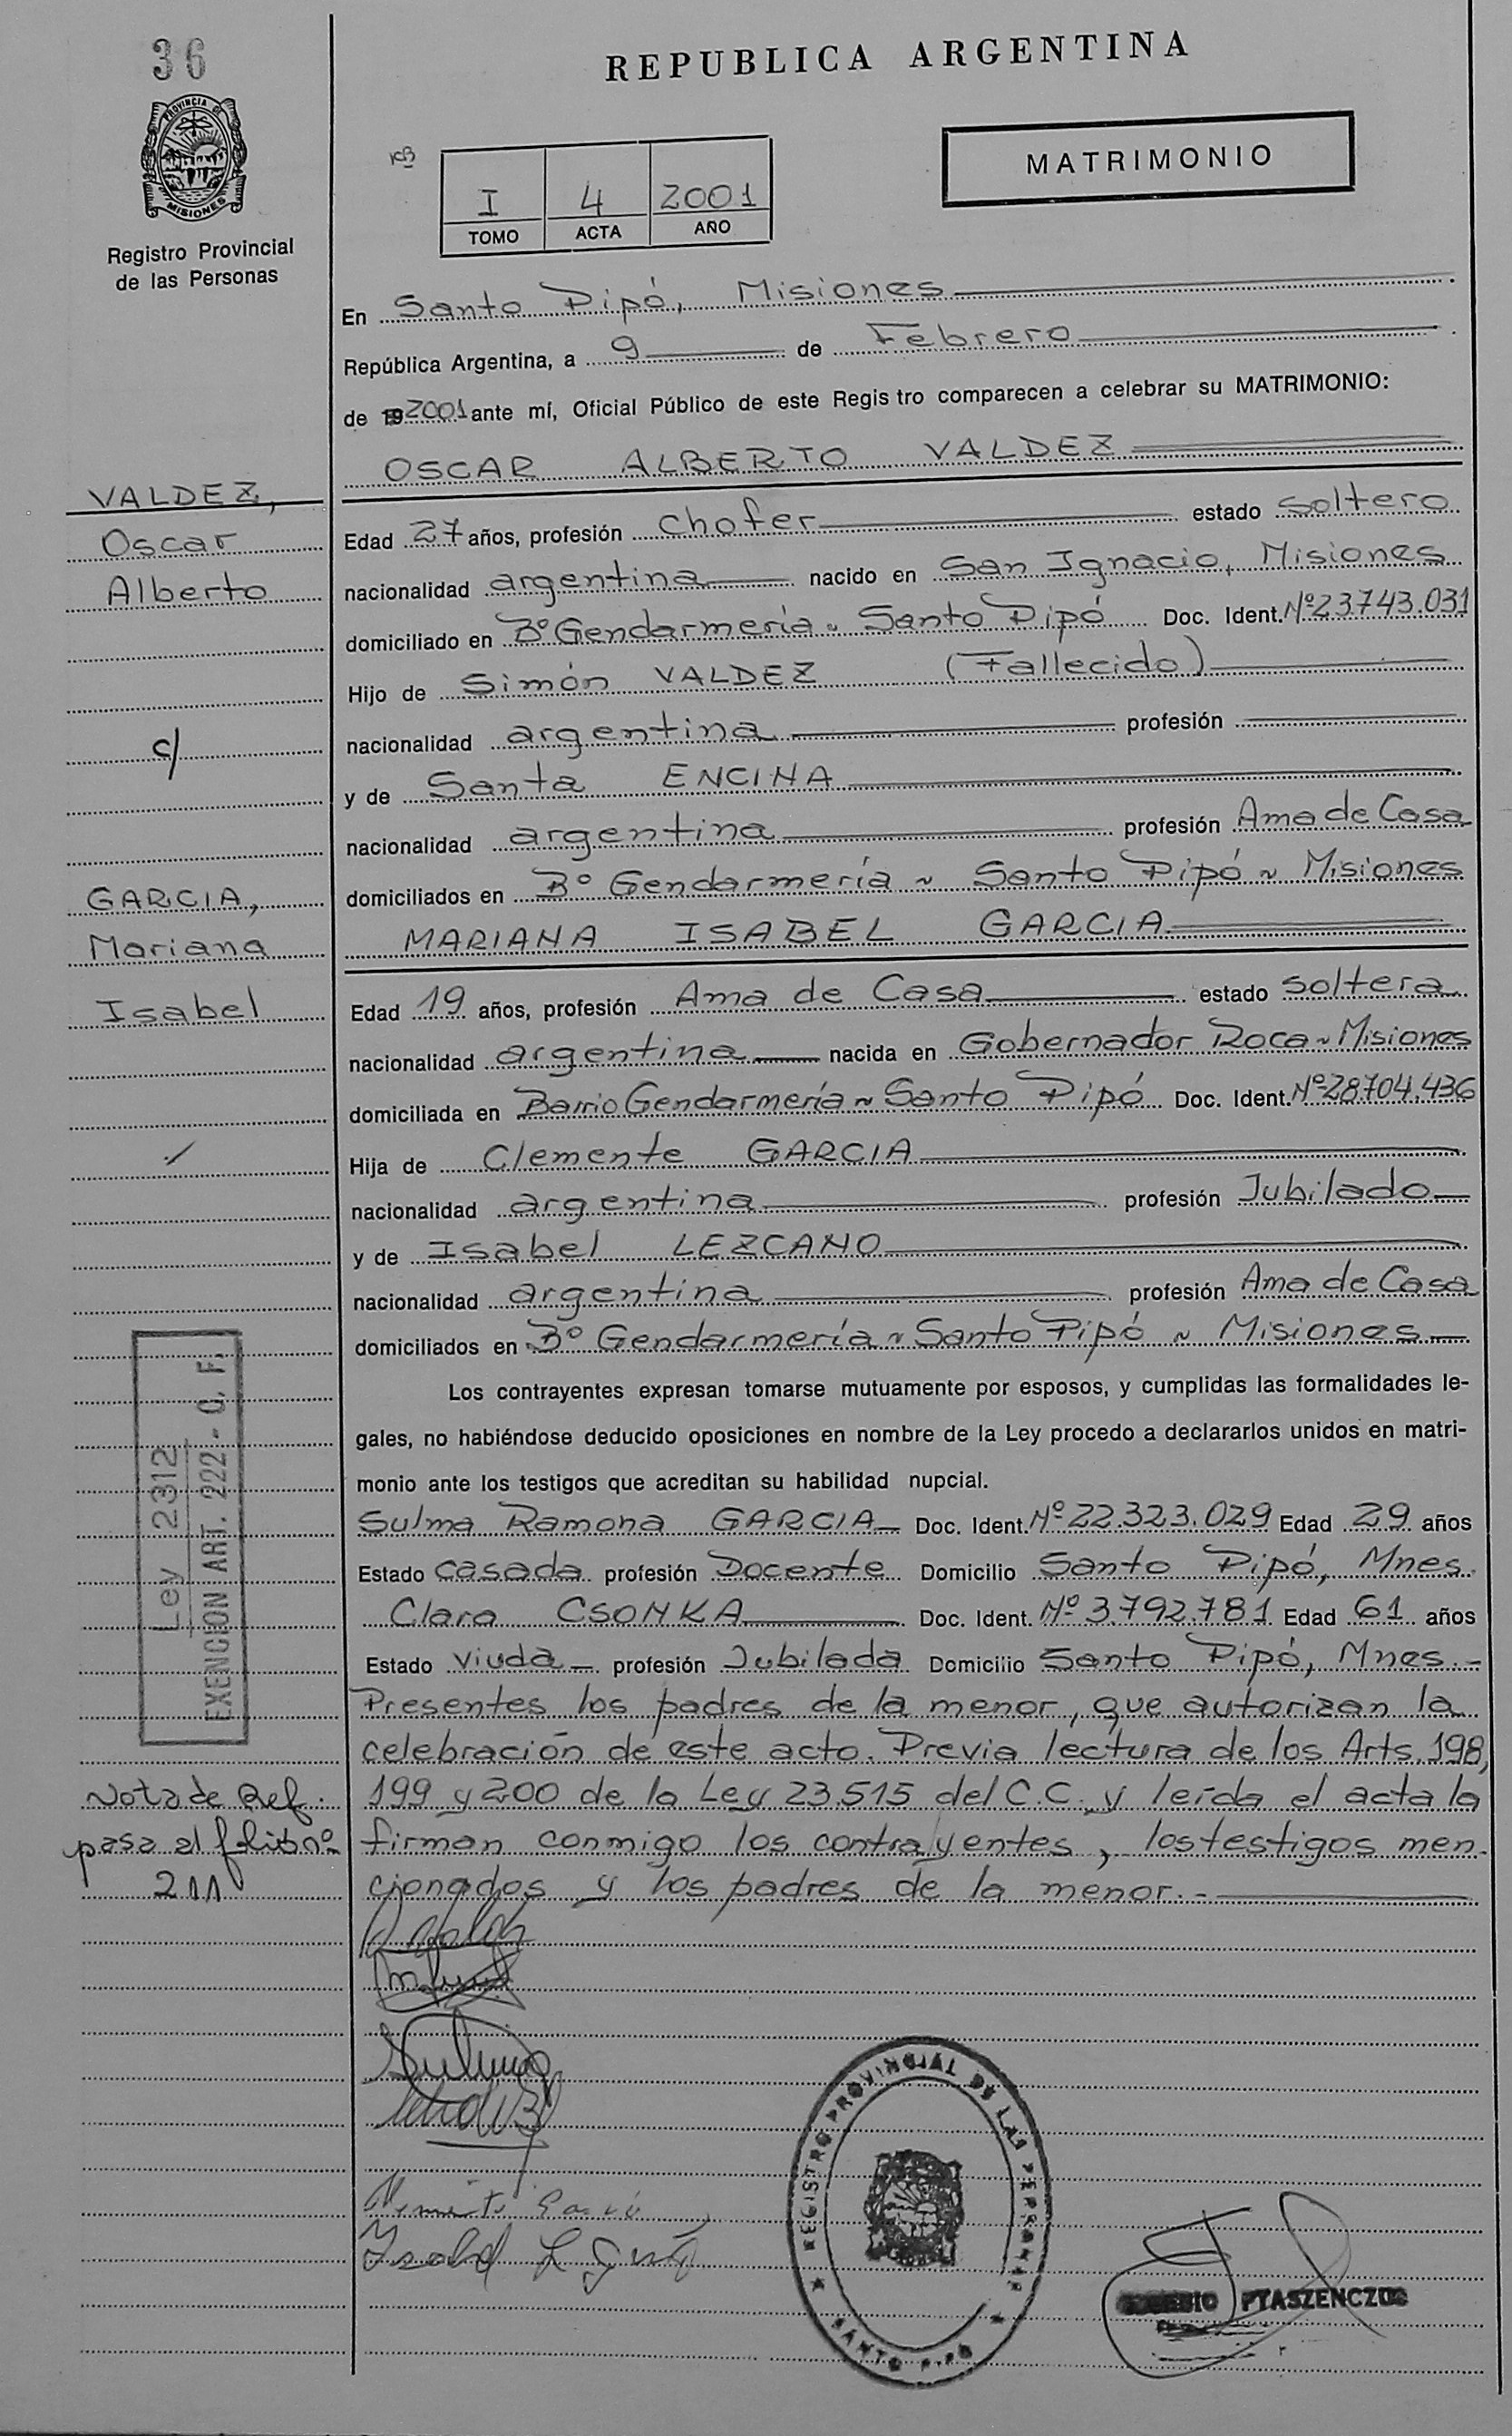 36
REPUBLICA ARGENTINA
PROVINCIA DE
MISIONES
Registro Provincial
de las Personas
I 4 2001
TOMO ACTA AÑO
MATRIMONIO
En Santo Pipó, Misiones
República Argentina, a 9 de Febrero
de 19 2001 ante mí, Oficial Público de este Regis tro comparecen a celebrar su MATRIMONIO:
OSCAR ALBERTO VALDEZ
VALDEZ,
Oscar
Alberto
c/
GARCIA,
Mariana
Isabel
Edad 27 años, profesión chofer estado soltero
nacionalidad argentina nacido en San Ignacio, Misiones
domiciliado en Bº Gendarmería ~ Santo Pipó Doc. Ident. Nº 23.743.031
Hijo de Simón VALDEZ (Fallecido)
nacionalidad argentina profesión
y de Santa ENCINA
nacionalidad argentina profesión Ama de Casa
domiciliados en Bº Gendarmería ~ Santo Pipó ~ Misiones
MARIANA ISABEL GARCIA
Edad 19 años, profesión Ama de Casa estado soltera
nacionalidad argentina nacida en Gobernador Roca ~ Misiones
domiciliada en Barrio Gendarmería ~ Santo Pipó Doc. Ident. Nº 28.704.436
Hija de Clemente GARCIA
nacionalidad argentina profesión Jubilado
y de Isabel LEZCANO
nacionalidad argentina profesión Ama de Casa
domiciliados en Bº Gendarmería ~ Santo Pipó ~ Misiones
Los contrayentes expresan tomarse mutuamente por esposos, y cumplidas las formalidades le-
gales, no habiéndose deducido oposiciones en nombre de la Ley procedo a declararlos unidos en matri-
monio ante los testigos que acreditan su habilidad nupcial.
Sulma Ramona GARCIA Doc. Ident. Nº 22.323.029 Edad 29 años
Estado casada profesión Docente Domicilio Santo Pipó, Mnes.
Clara CSONKA Doc. Ident. Nº 3.792.781 Edad 61 años
Estado viuda profesión Jubilada Domicilio Santo Pipó, Mnes.-
Presentes los padres de la menor, que autorizan la
celebración de este acto. Previa lectura de los Arts. 198,
199 y 200 de la Ley 23.515 del C.C. y leída el acta la
firman conmigo los contrayentes, los testigos men-
cionados y los padres de la menor.-
Ley 2312
EXENCION ART. 222 - C. F.
Nota de Ref.
pasa al folio nº
211
REGISTRO PROVINCIAL DE LAS PERSONAS
SANTO PIPO
PTASZENCZUK